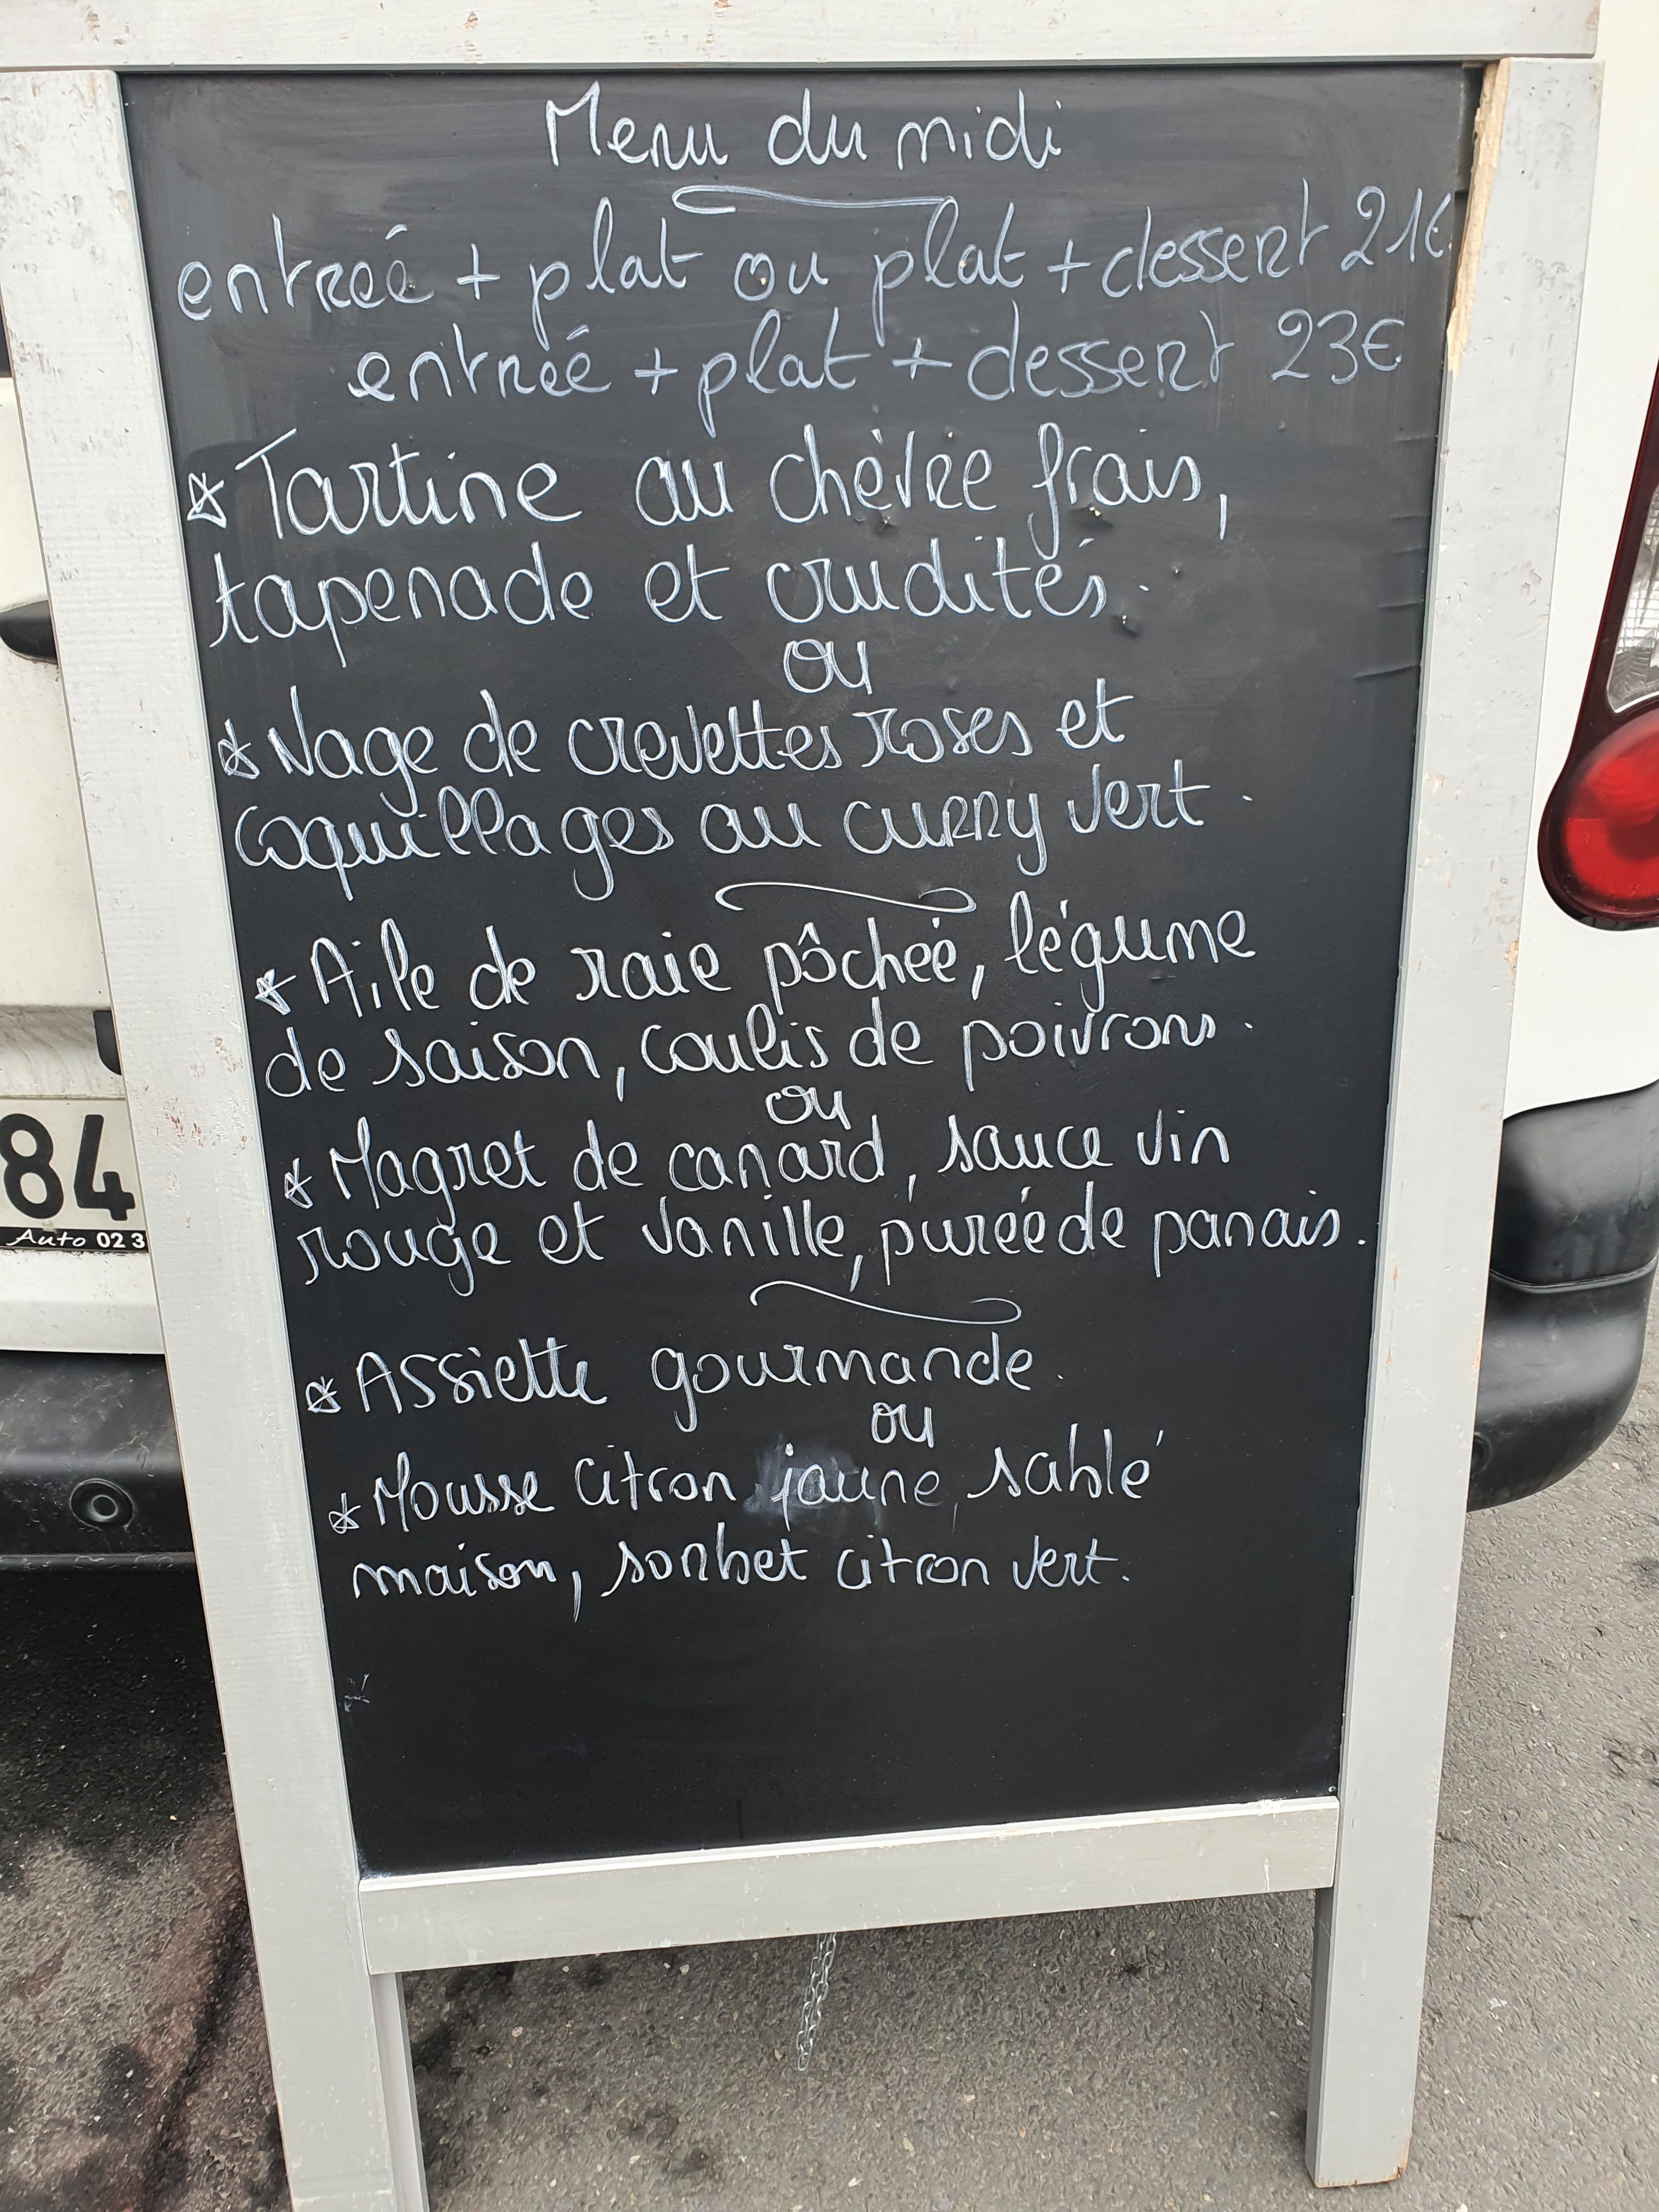 Menu du midi
entrée + plat ou plat + dessert 21€
entrée + plat + dessert 23€
* Tartine au chèvre frais,
tapenade et crudités.
ou
* Nage de crevettes roses et
coquillages au curry vert.
* Aile de raie pôchée, légume
de saison, coulis de poivrons.
ou
* Magret de canard, sauce vin
rouge et vanille, purée de panais.
* Assiette gourmande.
ou
* Mousse citron jaune, sablé
maison, sorbet citron vert.
84
Auto 02 3